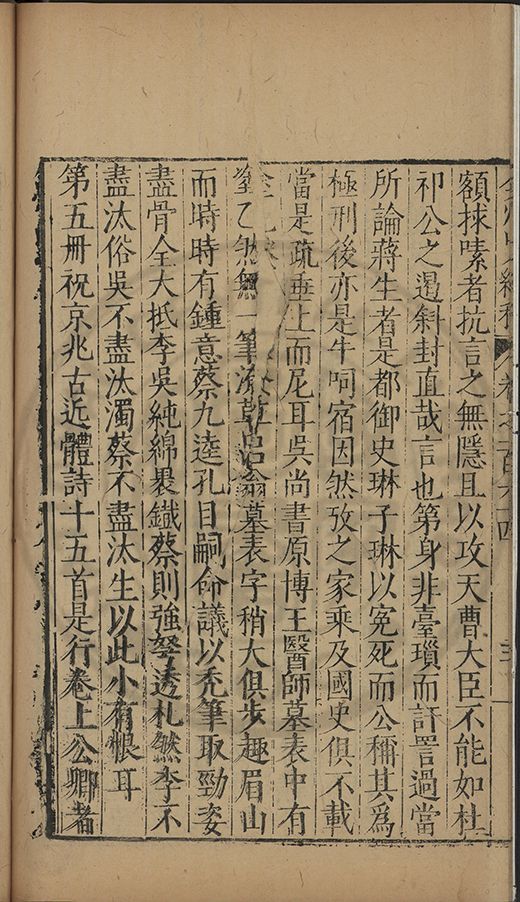 卷之一百六十四
額捄嗉者抗言之無隱且以攻天曹大臣不能如杜
祁公之遏斜封直哉言也第身非臺瑣而訐詈過當
所論蔣生者是都御史琳子琳以寃死而公稱其爲
極刑後亦是牛呞宿因然攷之家乘及國史俱不載
當是疏垂上而尼耳吳尚書原博王醫師墓表中有
塗乙然無一筆流草沼翁墓表字稍大俱步趣眉山
而時時有鍾意蔡九逵孔目嗣命議以禿筆取勁姿
盡骨全大抵李吳純綿裹鐵蔡則強弩透札然李不
盡汰俗吳不盡汰濁蔡不盡汰生以此小有恨耳
第五冊祝京兆古近體詩十五首是行卷上公卿者